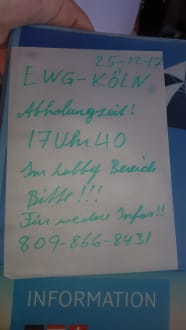 25-12-17
EWG-KÖLN
Abholungzeit!
17Uhr40
Im Lobby Bereich
Bitte!!!
Für weitere Infos!!
809-866-8431
INFORMATION